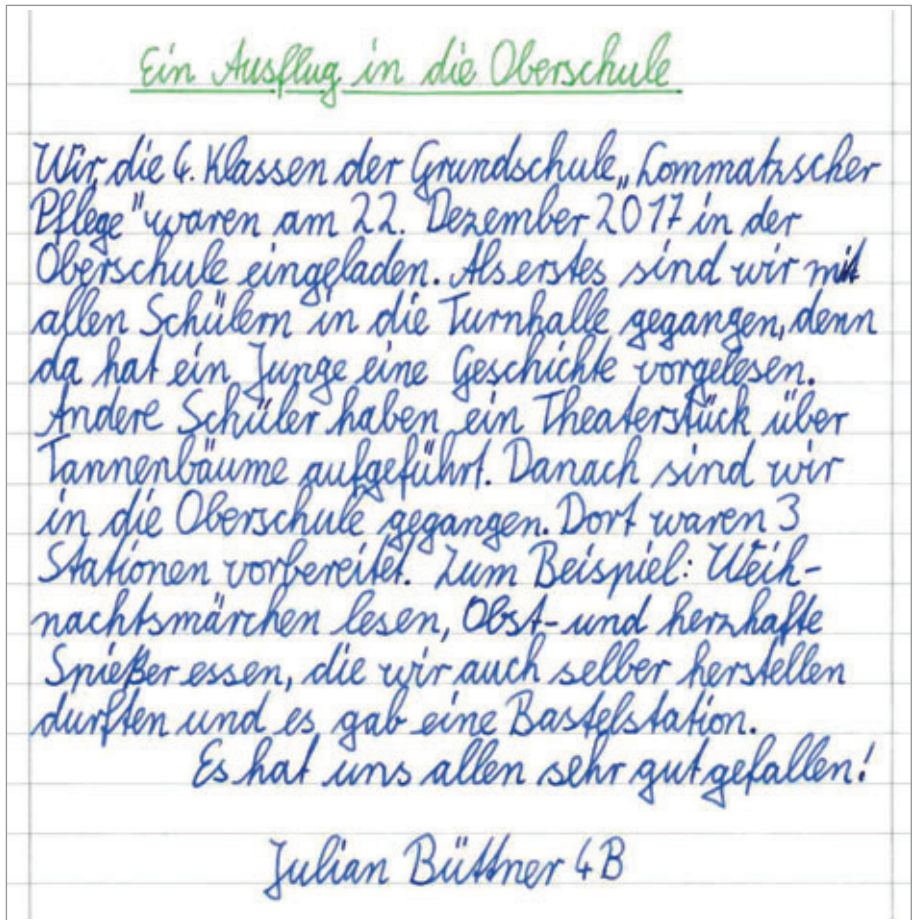 Ein Ausflug in die Oberschule
Wir, die 4. Klassen der Grundschule „Lommatzscher
Pflege" waren am 22. Dezember 2017 in der
Oberschule eingeladen. Als erstes sind wir mit
allen Schülern in die Turnhalle gegangen, denn
da hat ein Junge eine Geschichte vorgelesen.
Andere Schüler haben ein Theaterstück über
Tannenbäume aufgeführt. Danach sind wir
in die Oberschule gegangen. Dort waren 3
Stationen vorbereitet. Zum Beispiel: Weih-
nachtsmärchen lesen, Obst- und herzhafte
Spießer essen, die wir auch selber herstellen
durften und es gab eine Bastelstation.
Es hat uns allen sehr gut gefallen!
Julian Büttner 4B